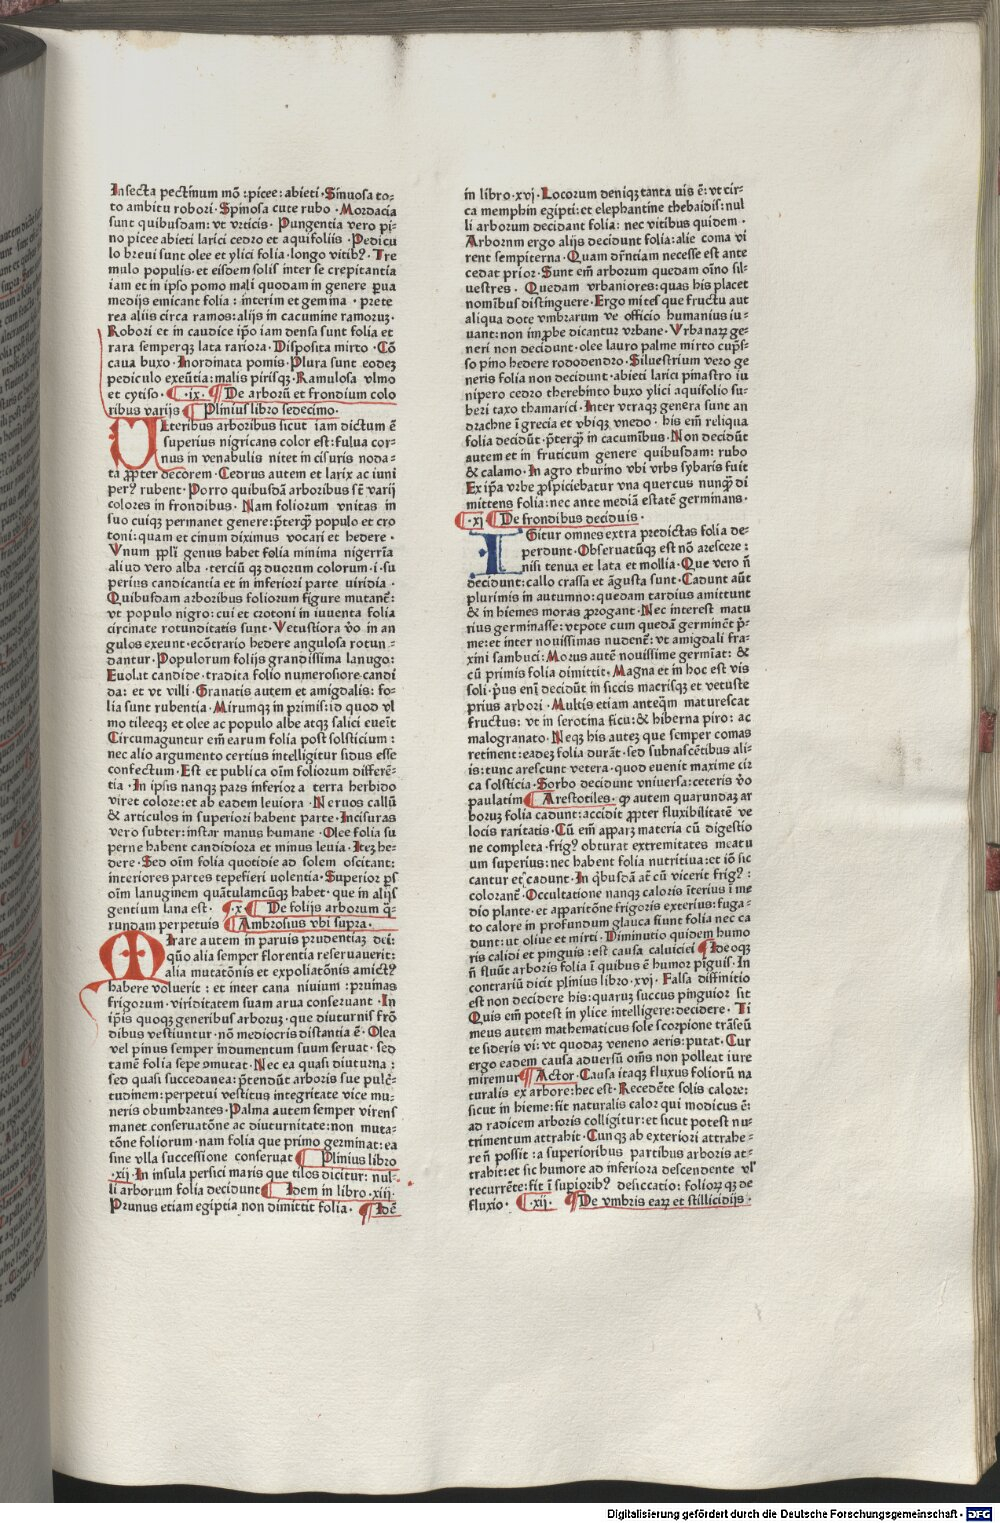 Insecta pectinum mõ :picee: abieti·Sinuosa to-
to ambitu robori·Spinosa cute rubo·Mordacia
sunt quibusdam: vt vrticis·Pungentia vero pi-
no picee abieti larici cedro et aquifoliis·Pedicu
lo breui sunt olee et ylici folia·longo vitibꝰ·Tre
mulo populis·et eisdem solis inter se crepitantia
iam et in ipso pomo mali quodam in genere ꝑua
medijs emicant folia: interim et gemina·prete
rea aliis circa ramos:alijs in cacumine ramoruꝫ·
Robori et in caudice ip̃o iam densa sunt folia et
rara semperqꝫ lata rariora·Disposita mirto·Cõ
caua buxo·Inordinata pomis·Plura sunt eodeꝫ
pediculo exeũtia:malis pirisqꝫ·Ramulosa vlmo
et cytiso·¶·ix·¶De arborũ et frondium colo
ribus varijs¶Plinius libro sedecimo·
Ulteribus arboribus sicut iam dictum ẽ
superius nigricans color est:fulua cor-
nus in venabulis nitet incisuris noda-
ta ꝓpter decorem·Cedrus autem et larix ac iuni
perꝰ rubent·Porro quibusdã arboribus sẽ varij
colores in frondibus·Nam foliorum vnitas in
suo cuiqꝫ permanet genere:p̃terqꝫ populo et cro
toni:quam et cinum diximus vocari et hedere·
Vnum ppl̃i genus habet folia minima nigerria
aliud vero alba·terciũ qꝫ duorum colorum·i·su
perius candicantia et in inferiori parte viridia·
Quibusdam arboribus foliorum figure mutant̃:
vt populo nigro:cui et crotoni in iuuenta folia
circinate rotunditatis sunt·Vetustiora ṽo in an
gulos exeunt·ecõtrario hedere angulosa rotun-
dantur·Populorum folijs grandissima lanugo:
Euolat candide·tradita folio numerosiore candi
da: et vt villi·Granatis autem et amigdalis: fo-
lia sunt rubentia·Mirumqꝫ in primis:id quod vl
mo tileeqꝫ et olee ac populo albe atqꝫ salici eueĩt
Circumaguntur em̃ earum folia post solsticium:
nec alio argumento certius intelligitur sidus esse
confectum·Est et publica oĩm foliorum differẽ-
tia·In ipsis nanqꝫ pars inferior a terra herbido
viret colore:et ab eadem leuiora·Neruos callũ
& articulos in superiori habent parte·Incisuras
vero subter:instar manus humane·Olee folia su
perne habent candidiora et minus leuia·Iteꝫ he-
dere·Sed oĩm folia quotidie ad solem oscitant:
interiores partes tepefieri uolentia·Superior ꝑs
oĩm lanuginem quãtulamcũqꝫ habet·que in alijs
gentium lana est·¶·x·¶De folijs arborum q̃-
rundam perpetuis¶Ambrosius vbi supra·
Mirare autem in paruis prudentiaꝫ dei:
quõ alia semper florentia reseruauerit:
alia mutatõnis et expoliatõnis amictꝰ
habere voluerit: et inter cana niuium:pruinas
frigorum·viriditatem suam arua conseruant·In
ip̃is quoqꝫ generibus arboruꝫ·que diuturnis frõ
dibus vestiuntur·nõ mediocris distantia ẽ·Olea
vel pinus semper indumentum suum seruat·sed
tamẽ folia sepe ɔmutat·Nec ea quasi diuturna:
sed quasi succedanea:p̃tendũt arboris sue pulc̃-
tudinem:perpetui vestitus integritate vice mu-
neris obumbrantes·Palma autem semper virens
manet conseruatõne ac diuturnitate:non muta-
tõne foliorum·nam folia que primo germinat:ea
sine vlla successione conseruat¶Plinius libro
·xij·In insula persici maris que tilos dicitur: nul-
li arborum folia decidunt¶Idem in libro·xiij·
Prunus etiam egiptia non dimittit folia·¶Idẽ
in libro·xvj·Locorum deniqꝫ tanta uis ẽ:vt cir-
ca memphin egipti:et elephantine thebaidis:nul
li arborum decidant folia: nec vitibus quidem·
Arbornm ergo alijs decidunt folia:alie coma vi
rent sempiterna·Quam dr̃ntiam necesse est ante
cedat prior·Sunt em̃ arborum quedam oĩno sil-
uestres·Quedam vrbaniores:quas his placet
nomĩbus distinguere·Ergo mites que fructu aut
aliqua dote vmbrarum ve officio humanius iu-
uant:non imꝓbe dicantur vrbane·Vrbanaꝝ ge-
neri non decidunt·olee lauro palme mirto cup̃s-
so pino hedere rododendro·Siluestrium vero ge
neris folia non decidunt·abieti larici pinastro iu
nipero cedro therebinto buxo ylici aquifolio su-
beri taxo thamarici·Inter vtraqꝫ genera sunt an
drachne ĩ grecia et vbiqꝫ vnedo·his em̃ reliqua
folia decidũt·p̃terqꝫ in cacumĩbus·Non decidũt
autem et in fruticum genere quibusdam: rubo
& calamo·In agro thurino vbi vrbs sybaris fuit
Ex ip̃a vrbe ꝓspiciebatur vna quercus nunqꝫ̃ di
mittens folia:nec ante mediã estatẽ germinans·
¶·xj·¶De frondibus deciduis·
IGitur omnes extra predictas folia de-
perdunt·Obseruatũqꝫ est nõ arescere:
nisi tenua et lata et mollia·Que vero ñ
decidunt:callo crassa et ãgusta sunt·Cadunt aũt
plurimis in autumno:quedam tardius amittunt
& in hiemes moras ꝓrogant·Nec interest matu
rius germinasse:vtpote cum quedã germinẽt p̃-
me:et inter nouissimas nudent̃:vt amigdali fra-
xini sambuci:Morus autẽ nouissime germĩat: &
cũ primis folia dimittit·Magna et in hoc est vis
soli·pꝰus enĩ decidũt in siccis macrisqꝫ et vetuste
prius arbori·Multis etiam anteqꝫ̃ maturescat
fructus: vt in serotina ficu:& hiberna piro: ac
malogranato·Neqꝫ his auteꝫ que semper comas
retinent:eadeꝫ folia durãt·sed subnascẽtibus ali-
is:tunc arescunt vetera·quod euenit maxime cir
ca solsticia·Sorbo decidunt vniuersa:ceteris ṽo
paulatim¶Arestotiles·ꝙ autem quarundaꝫ ar
boruꝫ folia cadunt:accidit ꝓpter fluxibilitatẽ ve
locis raritatis·Cũ em̃ apparꝫ materia cũ digestio
ne completa·frigꝰ obturat extremitates meatu
um superius:nec habent folia nutritiua:et iõ sic
cantur et cadunt·In q̃busdã at̃ cũ vicerit frigꝰ:
colorant̃·Occultatione nanqꝫ caloris ĩterius ĩ me
dio plante·et apparitõne frigoris exterius:fuga-
to calore in profundum glauca fiunt folia nec ca
dunt:ut oliue et mirti·Diminutio quidem humo
ris calidi et pinguis:est causa caluicici¶Ideoqꝫ
ñ fluũt arboris folia ĩ quibus ẽ humor pĩguis·In
contrariũ dicit plinius libro·xvj·Falsa diffinitio
est non decidere his:quaruꝫ succus pinguior sit
Quis em̃ potest in ylice intelligere:decidere·Ti
meus autem mathematicus sole scorpione trãseũ
te sideris vi: vt quodaꝫ veneno aeris:putat·Cur
ergo eadem causa aduersũ om̃s non polleat iure
miremur¶Actor·Causa itaqꝫ fluxus foliorũ na
turalis ex arbore:hec est·Recedẽte solis calore:
sicut in hieme:fit naturalis calor qui modicus ẽ:
ad radicem arboris colligitur:et sicut potest nu-
trimentum attrahit·Cunqꝫ ab exteriori attrahe-
re ñ possit:a superioribus partibus arboris at-
trahit:et sic humore ad inferiora descendente vl̃
recurrẽte:fit ĩ supioribꝰ desiccatio: folioꝝqꝫ de
fluxio·¶·xij·¶De vmbris earꝫ et stillicidijs·
Digitalisierung gefördert durch die Deutsche Forschungsgemeinschaft · DFG